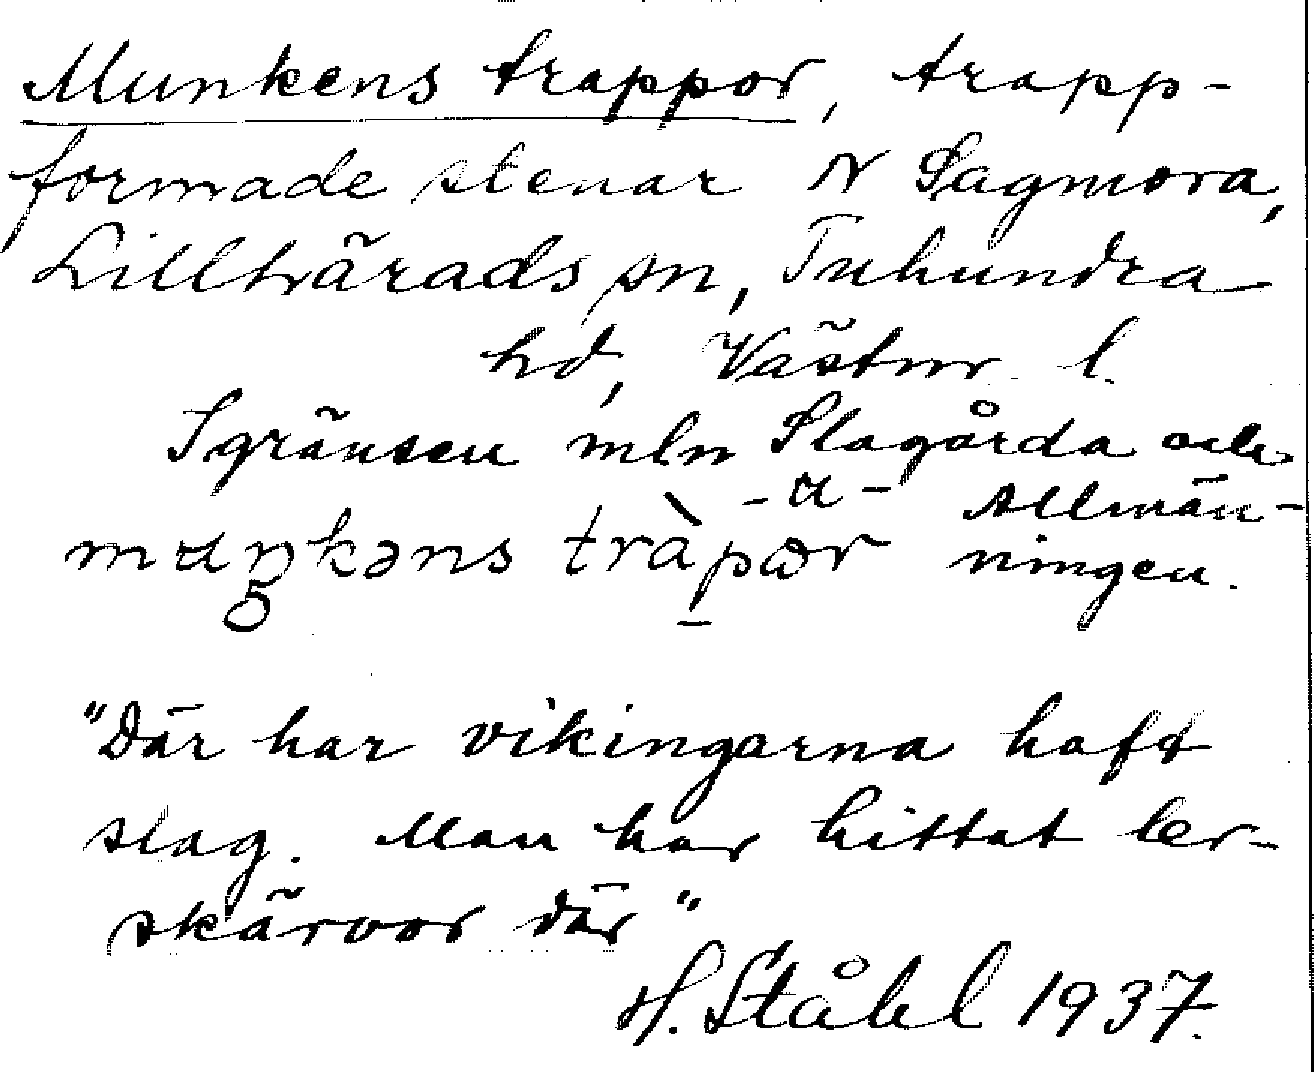 Munkens trappor, trapp-
formade stenar N Sagmora,
Lillhärads sn, Tuhundra
hd, Västm. l.
I gränsen mln Slagårda och
-a- Allmän-
muŋkəns tràpər ningen.
"Där har vikingarna haft
slag. Man har hittat ler-
skärvor där"
H. Ståhl 1937.